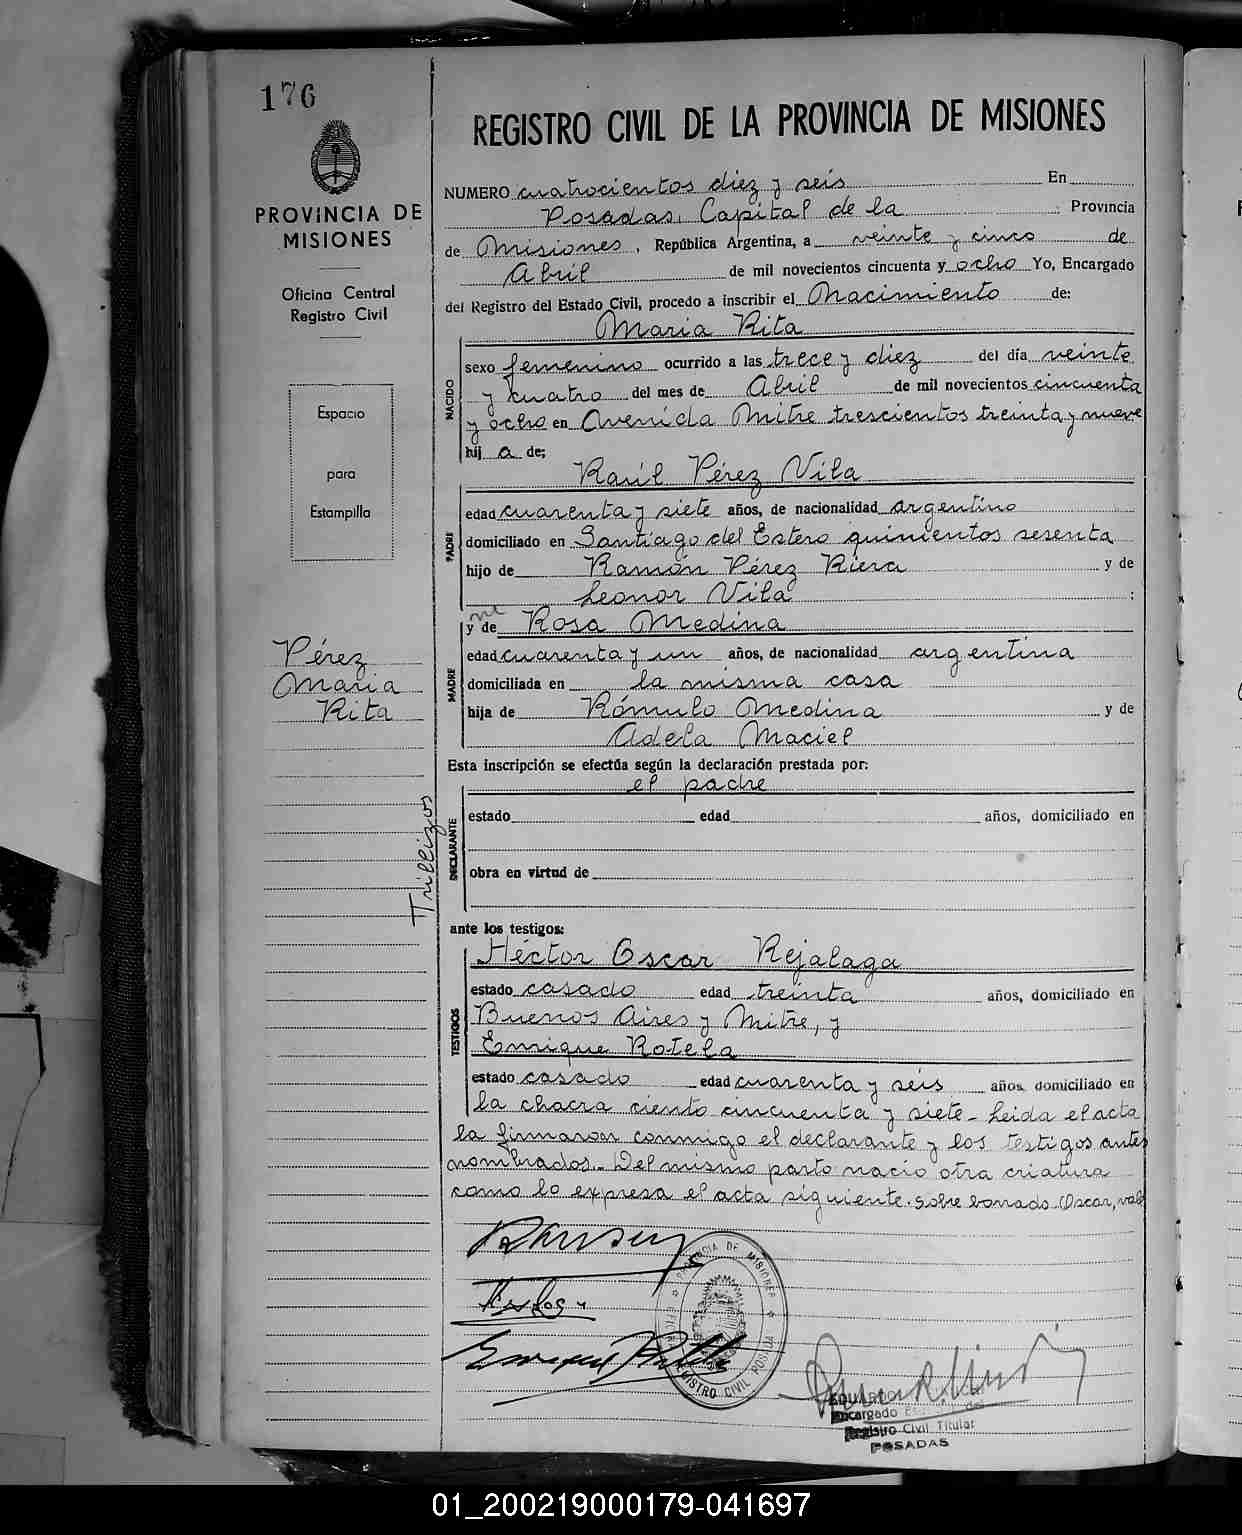 176
PROVINCIA DE
MISIONES
Oficina Central
Registro Civil
Espacio
para
Estampilla
Pérez
Maria
Rita
Trillizos
REGISTRO CIVIL DE LA PROVINCIA DE MISIONES
NUMERO cuatrocientos diez y seis En
Posadas, Capital de la Provincia
de Misiones, República Argentina, a veinte y cinco de
Abril de mil novecientos cincuenta y ocho Yo, Encargado
del Registro del Estado Civil, procedo a inscribir el Nacimiento de:
Maria Rita
NACIDO
sexo femenino ocurrido a las trece y diez del día veinte
y cuatro del mes de Abril de mil novecientos cincuenta
y ocho en Avenida Mitre trescientos treinta y nueve
hij a de;
Raúl Pérez Vila
PADRE
edad cuarenta y siete años, de nacionalidad argentino
domiciliado en Santiago del Estero quinientos sesenta
hijo de Ramón Pérez Riera y de
Leonor Vila :
y de Rosa Medina
MADRE
edad cuarenta y un años, de nacionalidad argentina
domiciliada en la misma casa
hija de Rómulo Medina y de
Adela Maciel
Esta inscripción se efectúa según la declaración prestada por:
el padre
DECLARANTE
estado edad años, domiciliado en
obra en virtud de
ante los testigos:
Héctor Oscar Rejalaga
TESTIGOS
estado casado edad treinta años, domiciliado en
Buenos Aires y Mitre, y
Enrique Rotela
estado casado edad cuarenta y seis años, domiciliado en
la chacra ciento cincuenta y siete - Leida el acta
la firmaron conmigo el declarante y los testigos antes
nombrados. - Del mismo parto nació otra criatura
como lo expresa el acta siguiente. Sobre borrado. Oscar, vale
PROVINCIA DE MISIONES
REGISTRO CIVIL POSADA
EDUARDO
Encargado
Registro Civil Titular
POSADAS
01_200219000179-041697